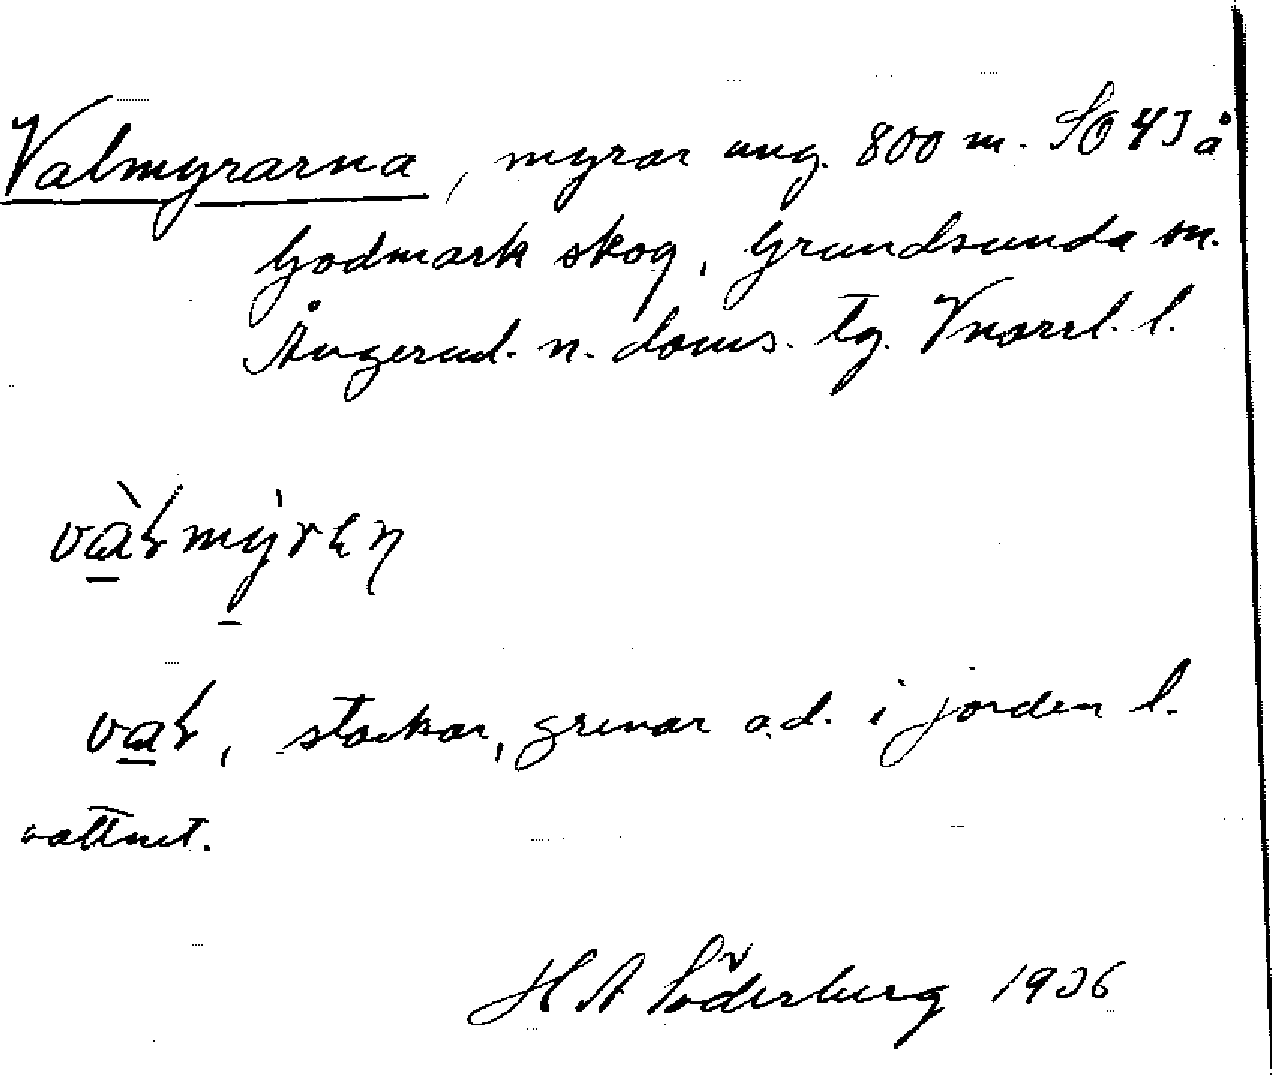 Valmyrarna, myrar ung. 800 m. SO 43 å
Godmark skog, Grundsunda sn.
Ångerml. n. doms. tg. Vnorrl. l.
vàɫmy̍rɛɳ
vaɫ, stockar, grenar o.d. i jorden l.
vattnet.
H A Söderberg 1936